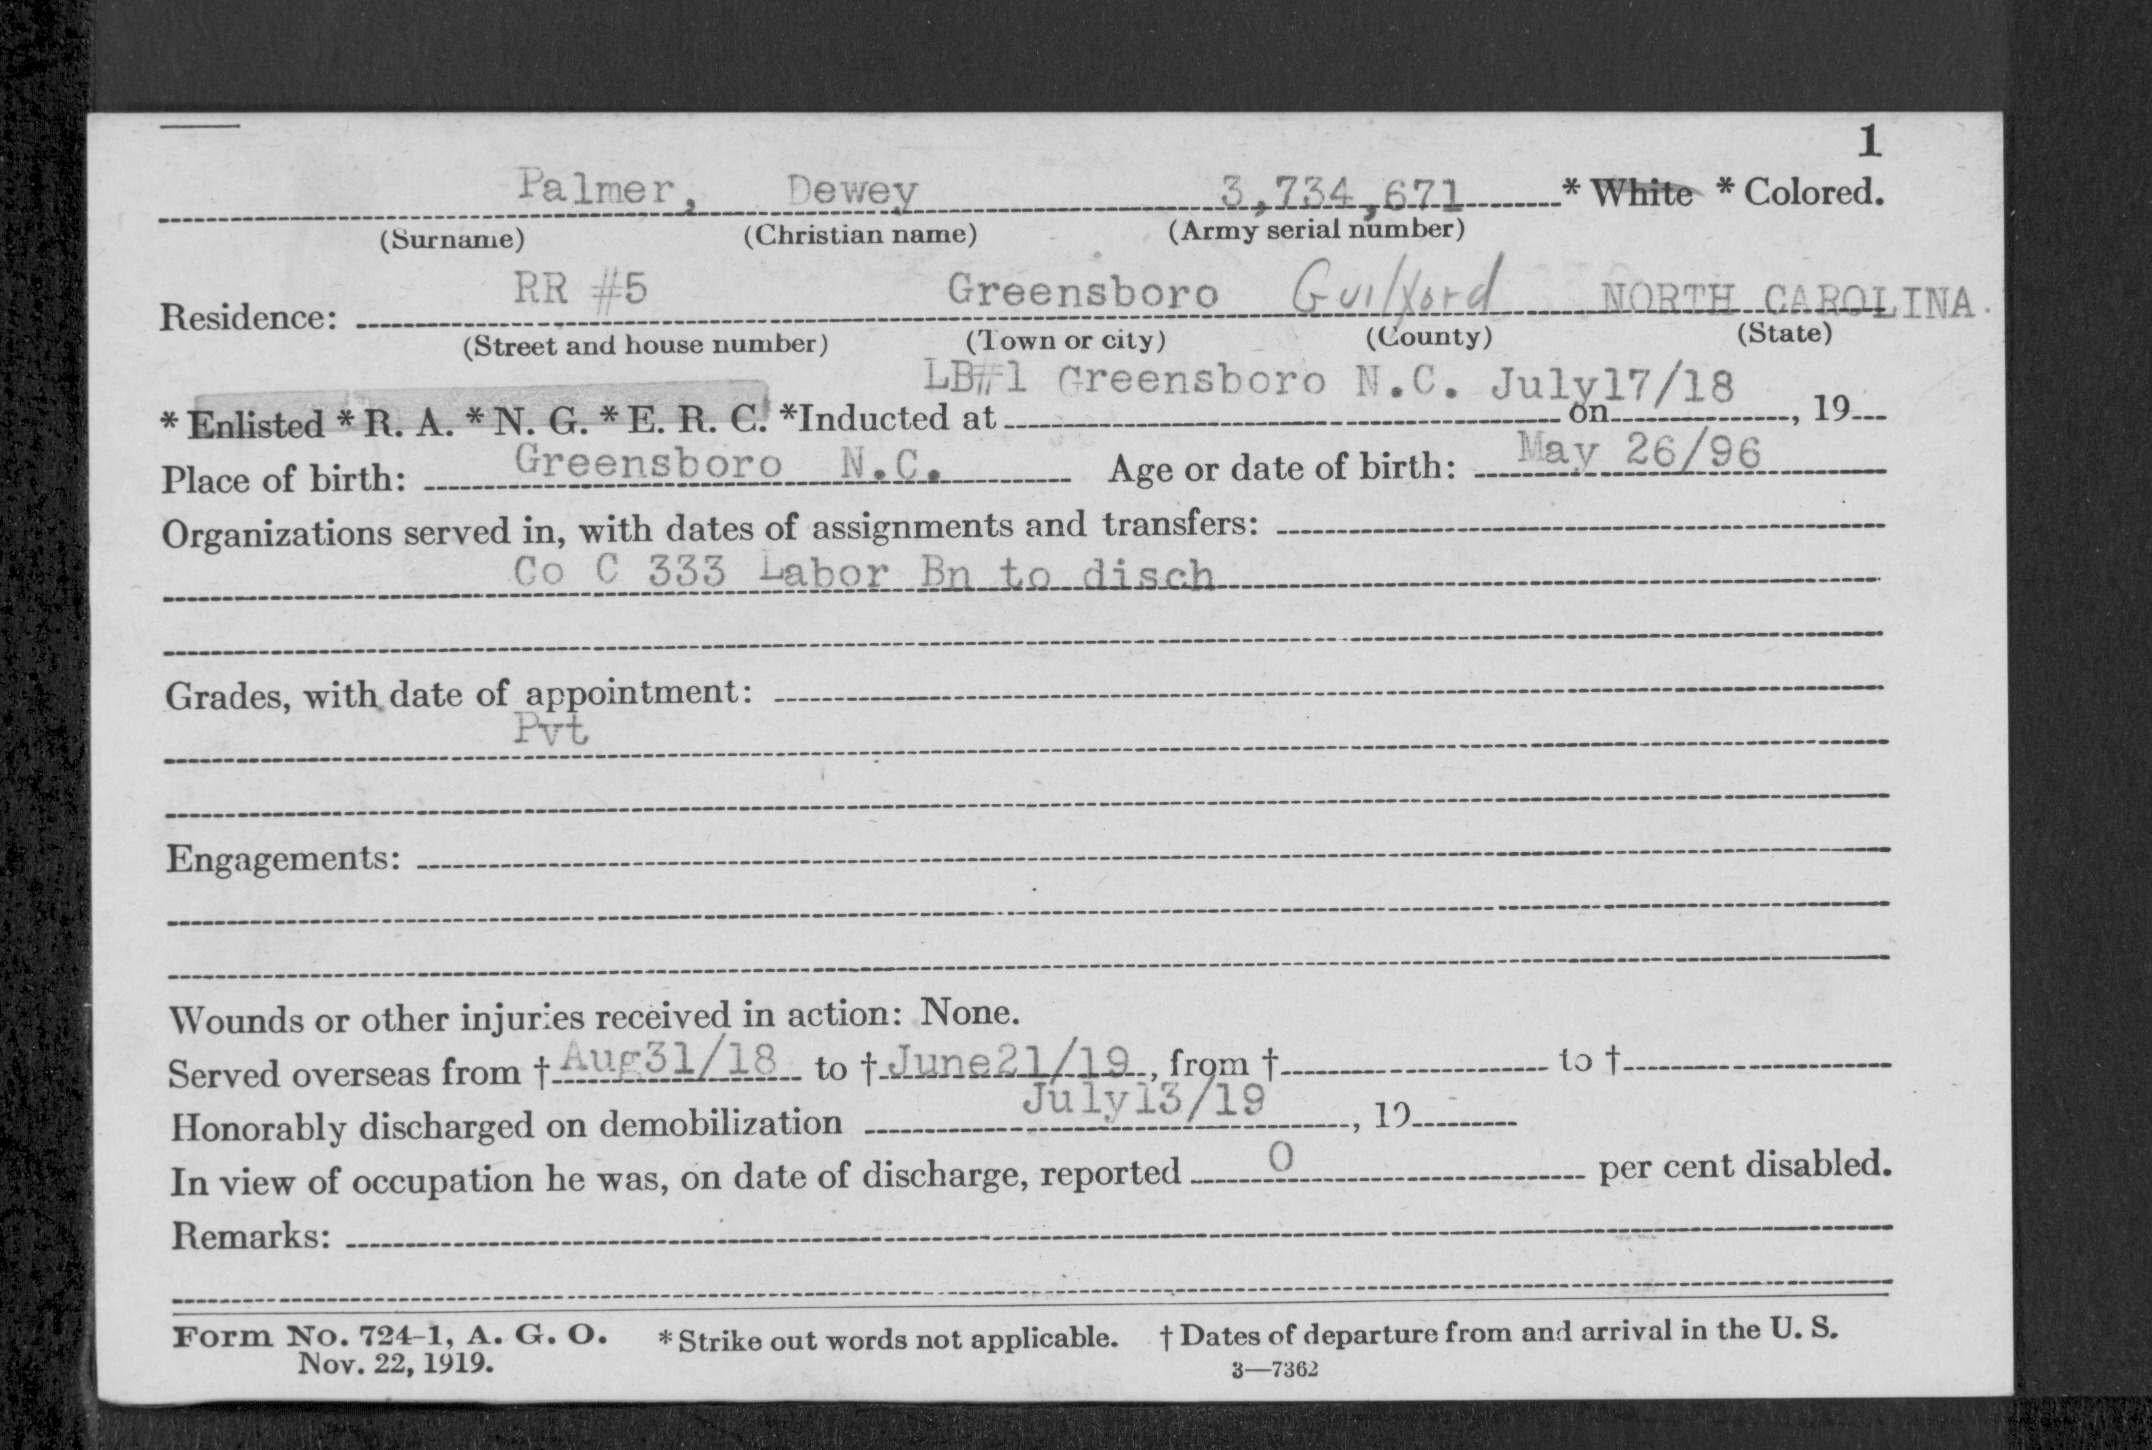 1
Palmer, Dewey 3,734,671 * White * Colored.
(Surname) (Christian name) (Army serial number)
RR #5 Greensboro Guilford NORTH CAROLINA.
Residence:
(Street and house number) (Town or city) (County) (State)
LB#1 Greensboro N.C. July17/18
* Enlisted * R. A. * N. G. * E. R. C. *Inducted at on , 19
Place of birth: Greensboro N.C. Age or date of birth: May 26/96
Organizations served in, with dates of assignments and transfers:
Co C 333 Labor Bn to disch
Grades, with date of appointment:
Pvt
Engagements:
Wounds or other injuries received in action: None.
Served overseas from † Aug31/18 to † June21/19, from † to †
Honorably discharged on demobilization July13/19, 19
In view of occupation he was, on date of discharge, reported 0 per cent disabled.
Remarks:
Form No. 724-1, A. G. O. * Strike out words not applicable. † Dates of departure from and arrival in the U. S.
Nov. 22, 1919. 3—7362